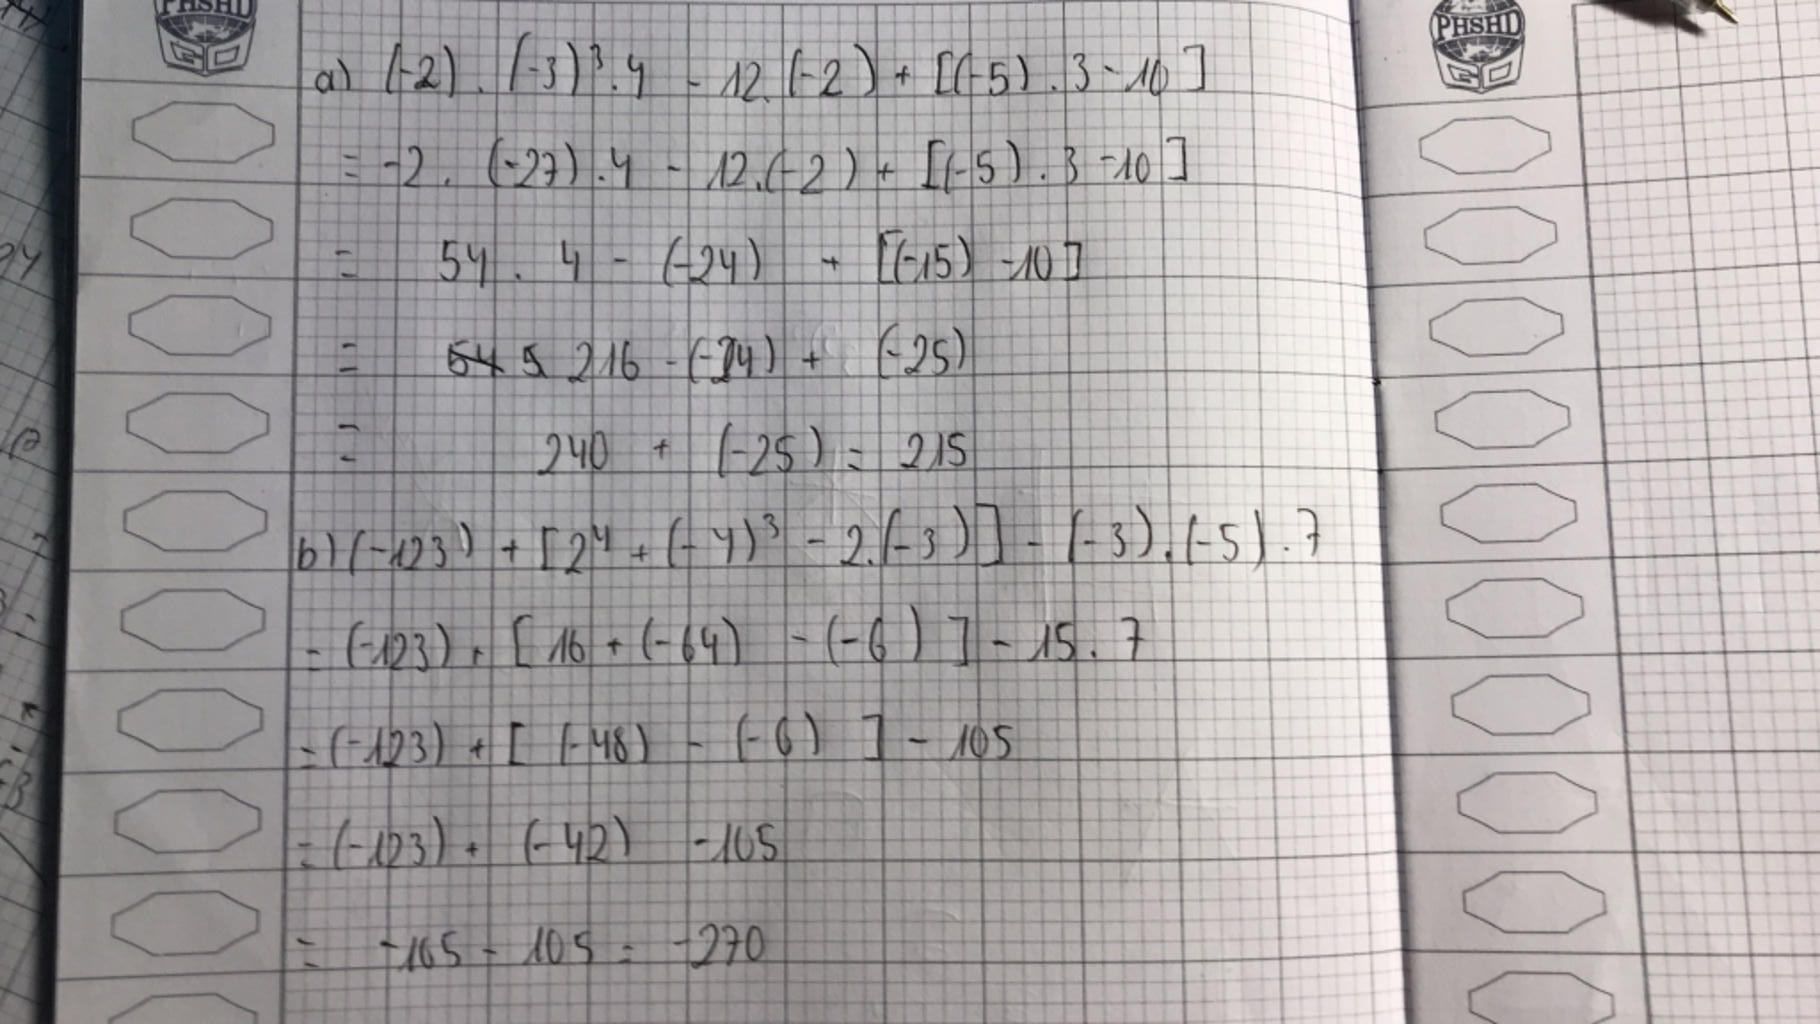 PHSHD
PHSHD
a) (-2) . (-3)³ . 4 - 12 . (-2) + [(-5) . 3 - 10]
= -2 . (-27) . 4 - 12 . (-2) + [(-5) . 3 - 10]
= 54 . 4 - (-24) + [(-15) - 10]
= 216 - (-24) + (-25)
= 240 + (-25) = 215
b) (-123) + [2⁴ + (-4)³ - 2 . (-3)] - (-3) . (-5) . 7
= (-123) + [16 + (-64) - (-6)] - 15 . 7
= (-123) + [(-48) - (-6)] - 105
= (-123) + (-42) - 105
= -165 - 105 = -270